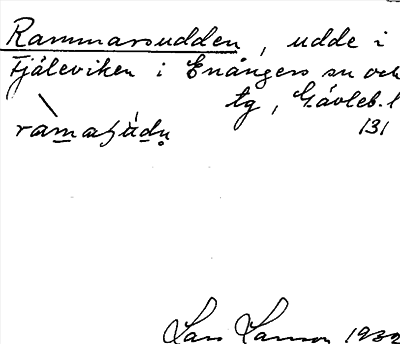 Rammarsudden, udde i
Fjäleviken i Enångers sn och
tg, Gävleb. l
131
Lars 1932